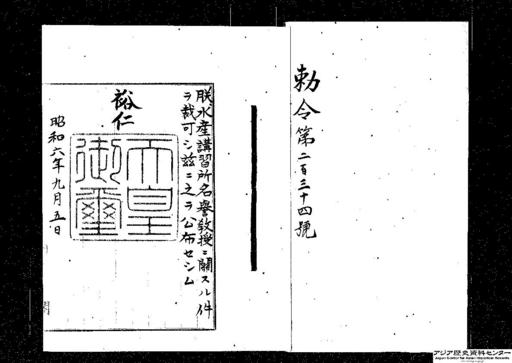 勅令第二百三十四號
朕水産講習所名譽教授ニ關スル件
ヲ裁可シ茲ニ之ヲ公布セシム
裕仁
天皇御璽
昭和六年九月五日
アジア歴史資料センター
Japan Center for Asian Historical Records